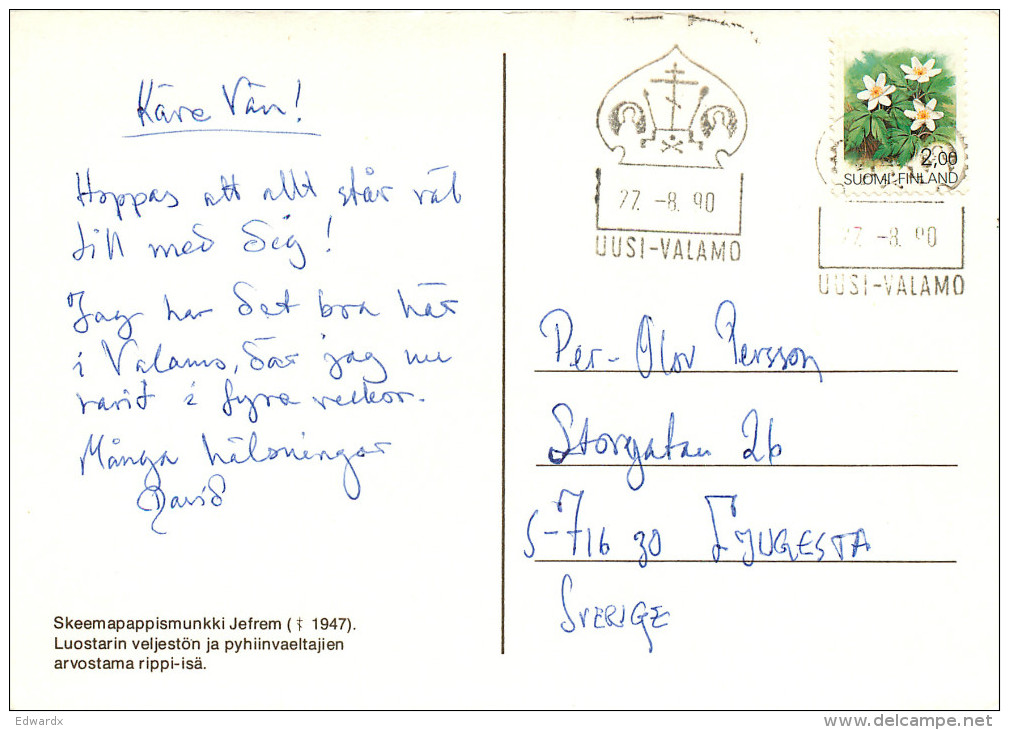 Käre Vän!
Hoppas att allt står väl
till med Dig!
Jag har det bra här
i Valamo, där jag nu
varit i fyra veckor.
Många hälsningar
David
Skeemapappismunkki Jefrem († 1947).
Luostarin veljestön ja pyhiinvaeltajien
arvostama rippi-isä.
27. -8. 90
UUSI-VALAMO
2,00
SUOMI-FINLAND
27. -8. 90
UUSI-VALAMO
Per-Olov Persson
Storgatan 26
S-716 30 FJUGESTA
SVERIGE
Edwardx
www.delcampe.net